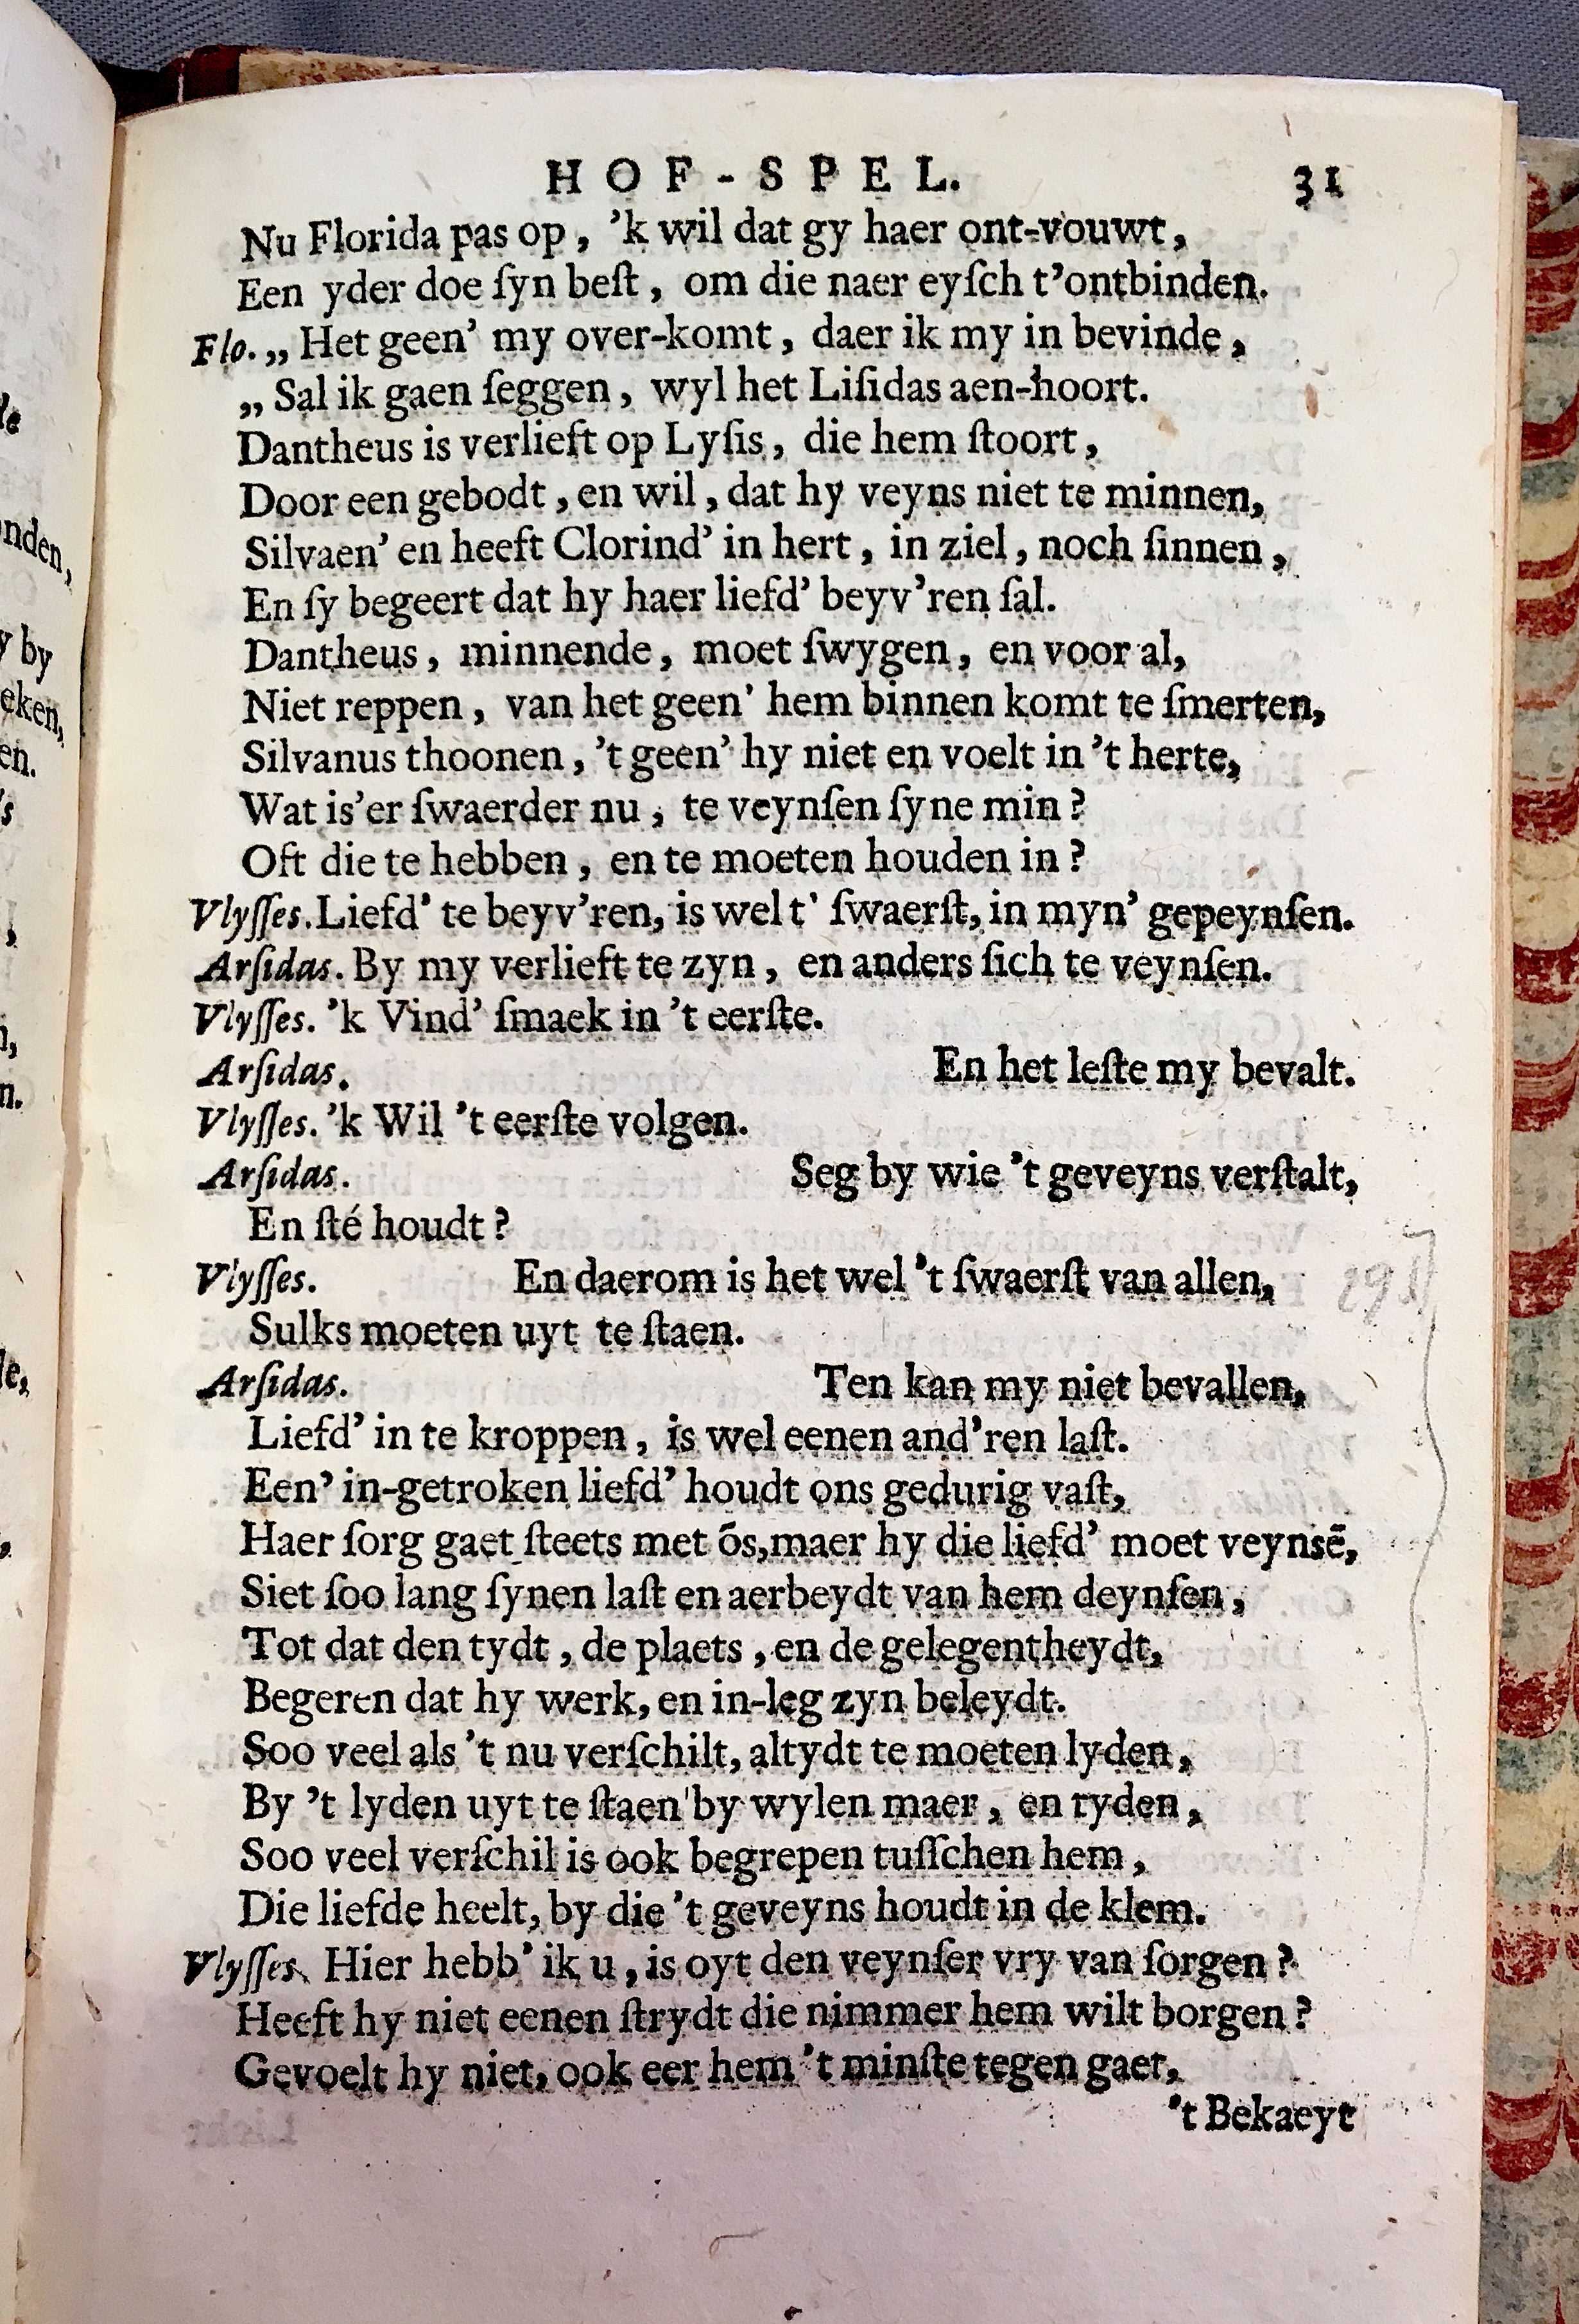 HOF-SPEL. 31
Nu Florida pas op, ’k wil dat gy haer ont-vouwt,
Een yder doe ſyn beſt, om die naer eyſch t’ontbinden.
Flo. „ Het geen’ my over-komt, daer ik my in bevinde,
„ Sal ik gaen ſeggen, wyl het Liſidas aen-hoort.
Dantheus is verlieft op Lyſis, die hem ſtoort,
Door een gebodt, en wil, dat hy veyns niet te minnen,
Silvaen’ en heeft Clorind’ in hert, in ziel, noch ſinnen,
En ſy begeert dat hy haer liefd’ beyv’ren ſal.
Dantheus, minnende, moet ſwygen, en voor al,
Niet reppen, van het geen’ hem binnen komt te ſmerten,
Silvanus thoonen, ’t geen’ hy niet en voelt in ’t herte,
Wat is’er ſwaerder nu, te veynſen ſyne min?
Oft die te hebben, en te moeten houden in?
Vlyſſes. Liefd’ te beyv’ren, is wel t’ ſwaerſt, in myn’ gepeynſen.
Arſidas. By my verlieft te zyn, en anders ſich te veynſen.
Vlyſſes. ’k Vind’ ſmaek in ’t eerſte.
Arſidas. En het leſte my bevalt.
Vlyſſes. ’k Wil ’t eerſte volgen.
Arſidas. Seg by wie ’t geveyns verſtalt,
En ſté houdt?
Vlyſſes. En daerom is het wel ’t ſwaerſt van allen,
Sulks moeten uyt te ſtaen.
Arſidas. Ten kan my niet bevallen,
Liefd’ in te kroppen, is wel eenen and’ren laſt.
Een’ in-getroken liefd’ houdt ons gedurig vaſt,
Haer ſorg gaet ſteets met õs, maer hy die liefd’ moet veynsẽ,
Siet ſoo lang ſynen laſt en aerbeydt van hem deynſen,
Tot dat den tydt, de plaets, en de gelegentheydt,
Begeren dat hy werk, en in-leg zyn beleydt.
Soo veel als ’t nu verſchilt, altydt te moeten lyden,
By ’t lyden uyt te ſtaen by wylen maer, en tyden,
Soo veel verſchil is ook begrepen tuſſchen hem,
Die liefde heelt, by die ’t geveyns houdt in de klem.
Vlyſſes. Hier hebb’ ik u, is oyt den veynſer vry van ſorgen?
Heeft hy niet eenen ſtrydt die nimmer hem wilt borgen?
Gevoelt hy niet, ook eer hem ’t minſte tegen gaet,
’t Bekaeyt